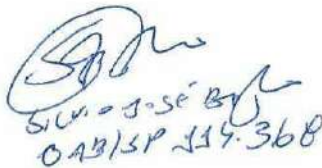 Silvio José
OAB/SP 114.368